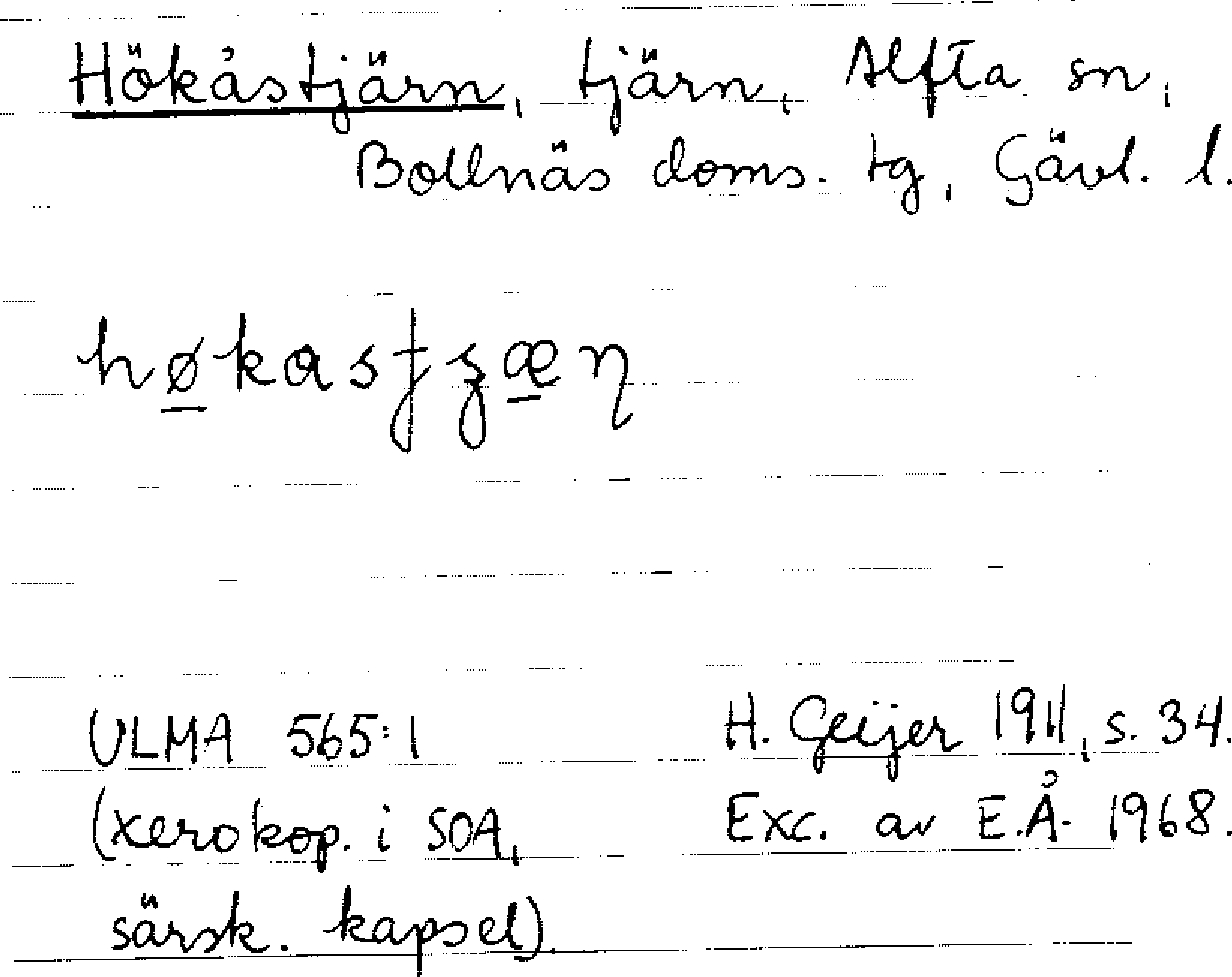 Hökåstjärn, tjärn, Alfta sn,
Bollnäs doms. tg, Gävl. l.
ULMA 565:1 H. Geijer 1911, s. 34.
(xerokop. i SOA, Exc. av E.Å. 1968.
särsk. kapsel).